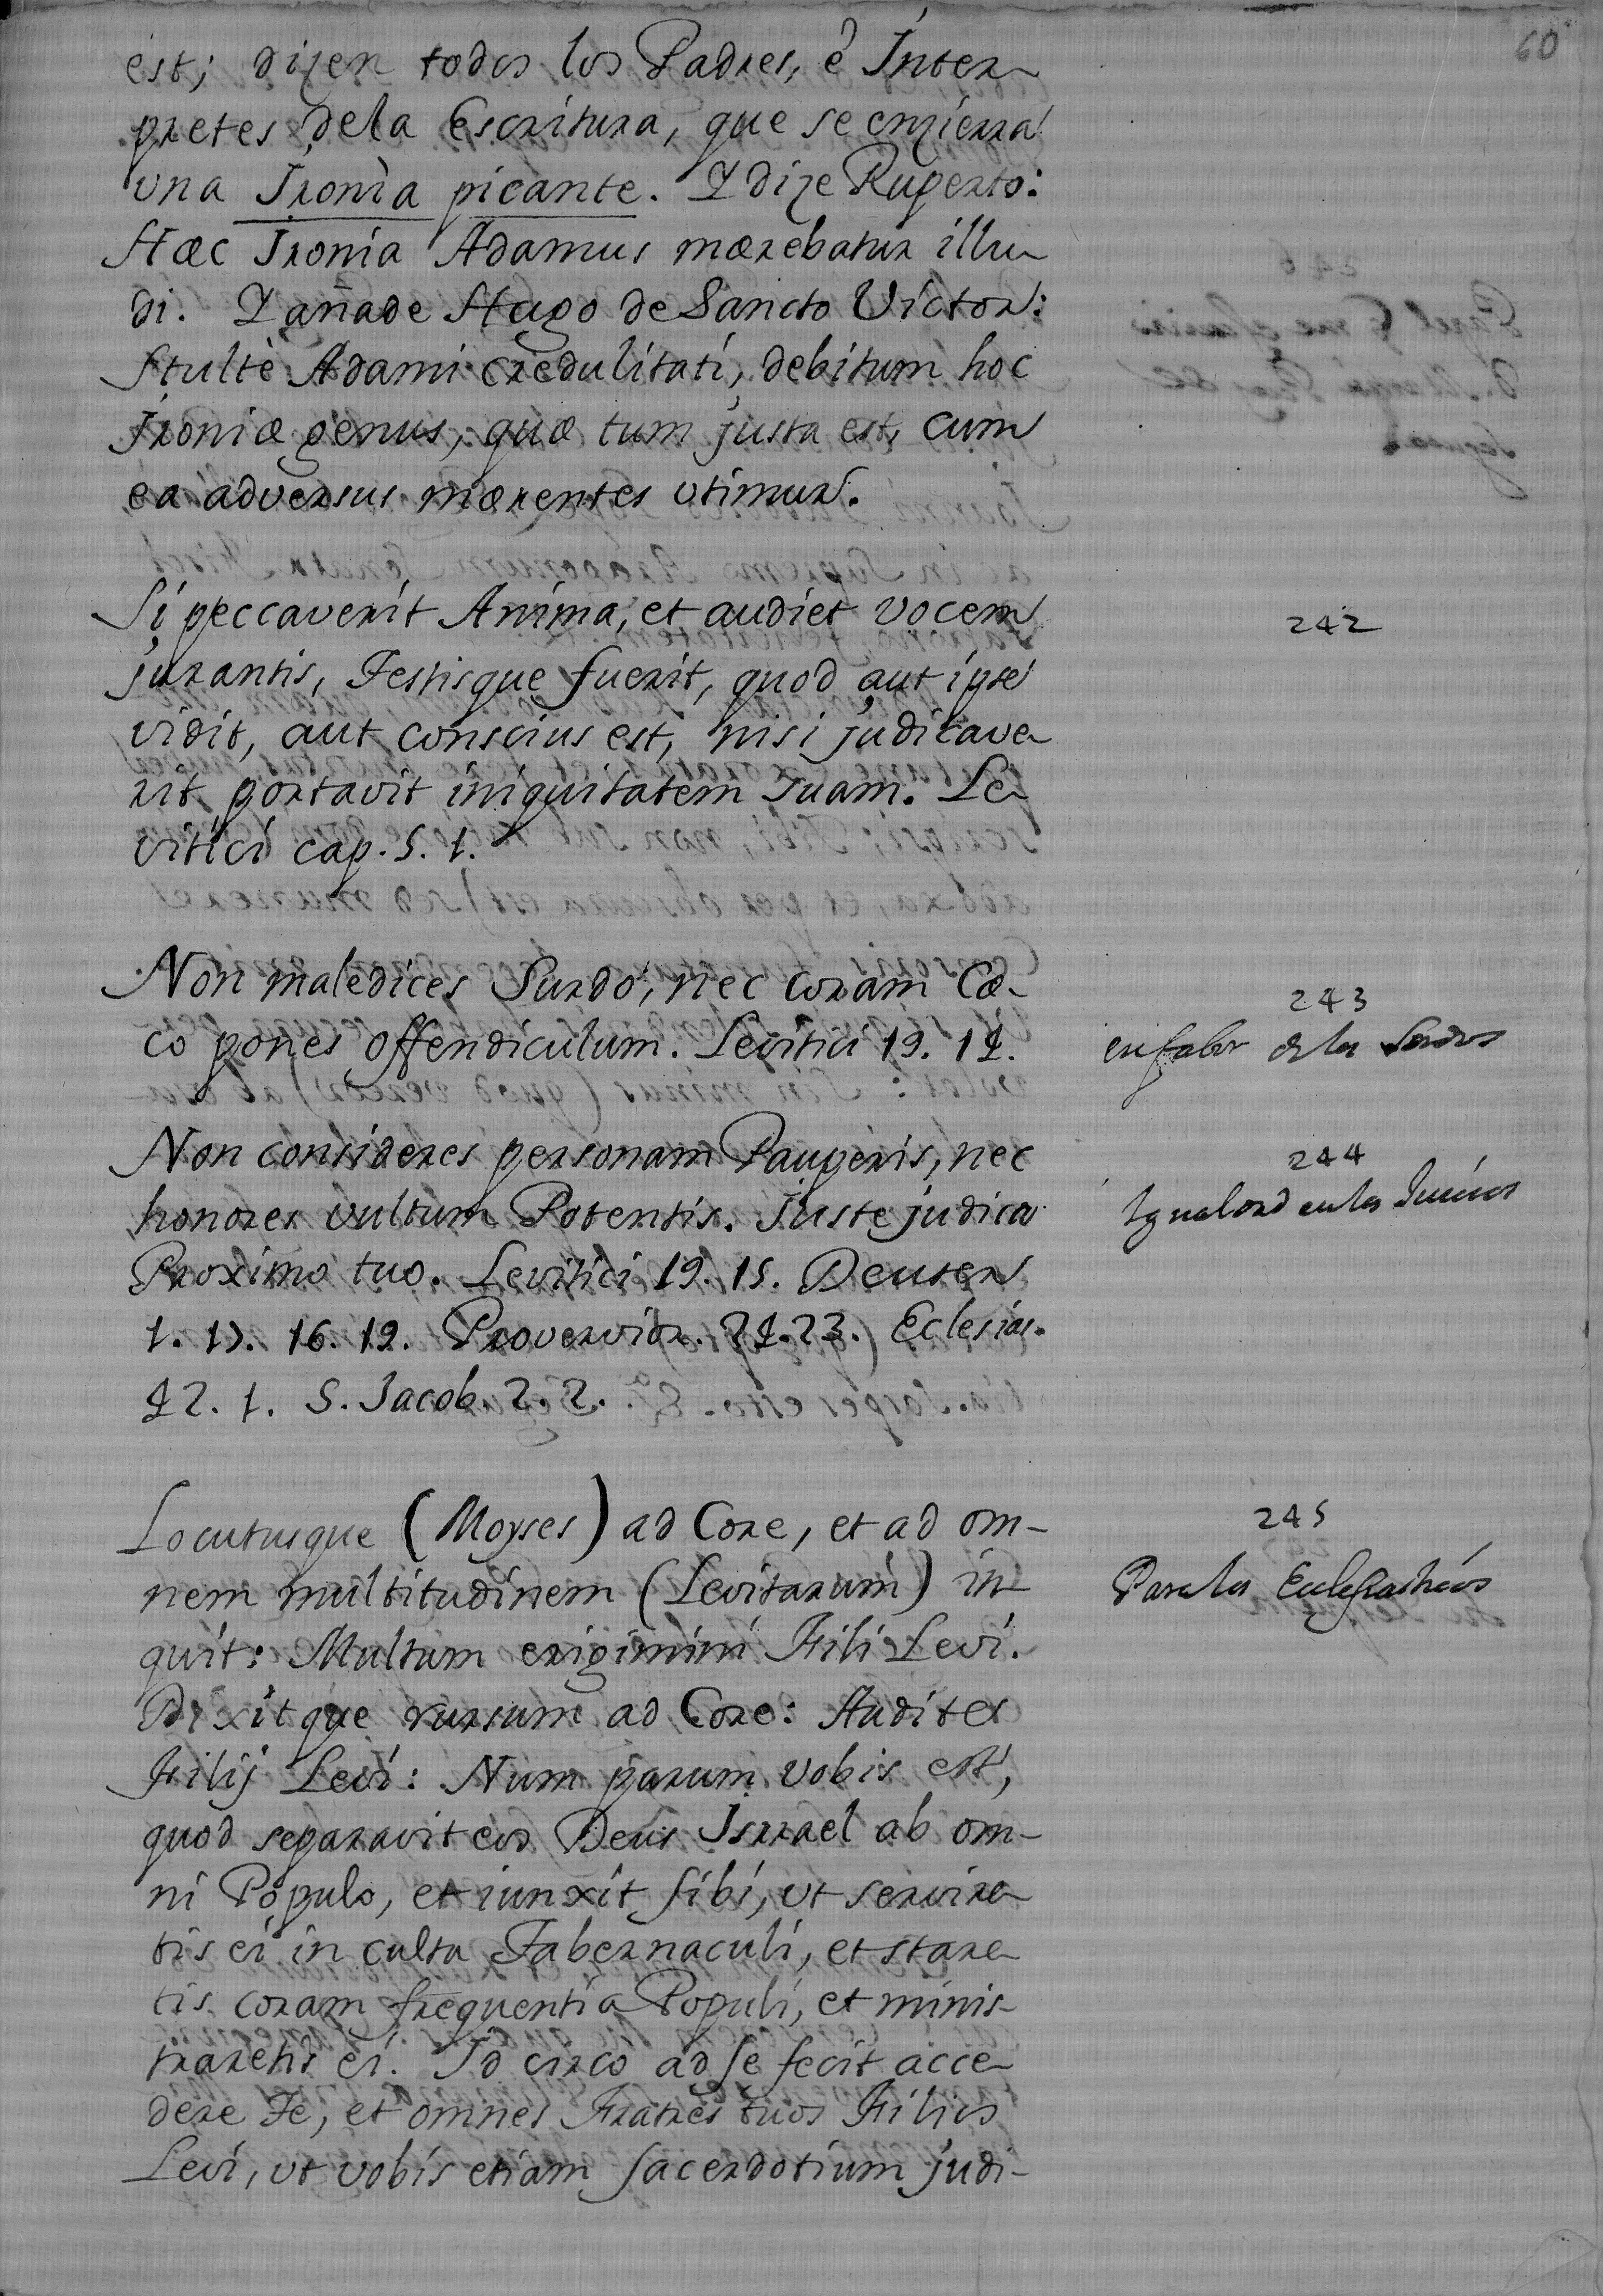 60
est; dizen todos los Padres, è Inter-
pretes dela Escritura, que se enzierra
una Ironìa picante. Y dize Ruperto:
Hæc Ironia Adamus mærebatur illu-
di. Y añade Hugo de Sancto Victor:
Stultè Adami credulitati, debitum hoc
Ironiæ genus, quæ tum justa est, cum
ea adversus mærentes utimur.
Si peccaverit Anima, et audiet vocem
242
jurantis, Testisque fuerit, quod aut ipse
vidit, aut conscius est, nisi judicave-
rit portavit iniquitatem suam. Le-
vitici cap. 5. 1.
Non maledices Surdo, nec coram Cæ-
243
co pones offendiculum. Levitici 19. 14.
en fabor de los Sordos
Non consideres personam Pauperis, nec
244
honores vultum Potentis. Juste judica
Igualdad en los Juicios
Proximo tuo. Levitici 19. 15. Deuter
1. 17. 16. 19. Provervior. 24. 23. Eclesias.
42. 1. S. Jacob. 2. 2.
Locutusque (Moyses) ad Core, et ad om-
245
nem multitudinem (Levitarum) in-
Para los Eclesiasticos
quit: Multum erigimini Fili Levi.
Dixitque rursum ad Core: Audites
Filij Levi: Num parum vobis est,
quod separavit eos Deus Israel ab om-
ni Populo, et iunxit sibi, ut servire-
tis ei in culta Tabernaculi, et stare-
tis coram frequentia Populi, et minis-
traretis ei. Id circo ad se fecit acce-
dere Te, et omnes Fratres tuos Filios
Levi, ut vobis etiam sacerdotium judi-